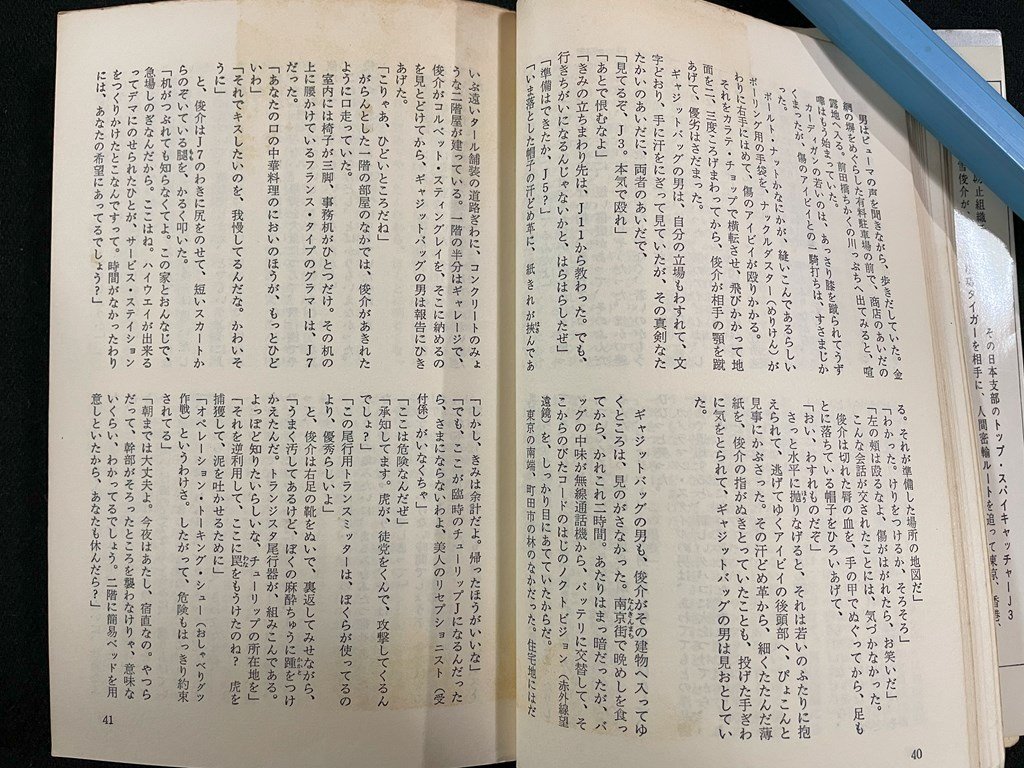 男はピューマの声を聞きながら、歩きだしていた。金
網の塀をめぐらした有料駐車場の前で、商店のあいだの
露地へ入る。前田橋ちかくの川っぷちへ出てみると、喧
嘩はもう始まっていた。
カーディガンの若いのは、あっさり膝を蹴られてうず
くまったが、傷のアイビイとの一騎打ちは、すさまじか
った。
ボールト・ナットかなにかが、縫いこんであるらしい
ボーリング用の手袋を、ナックルダスター(めりけん)が
わりに右手にはめて、傷のアイビイが殴りかかる。
それをカラテ・チョップで横転させ、飛びかかって地
面を二、三度ころげまわってから、俊介が相手の顎を蹴
あげて、優劣はさだまった。
ギャジットバッグの男は、自分の立場もわすれて、文
字どおり、手に汗をにぎって見ていたが、その真剣なた
たかいのあいだに、両者のあいだで、
「見てるぞ、J3。本気で殴れ」
「あとで恨むなよ」
「きみの立ちまわり先は、J11から教わった。でも、
行きちがいになるんじゃないかと、はらはらしたぜ」
「準備はできたか、J5?」
「いま落とした帽子の汗どめ革に、紙きれが挾んであ
る。それが準備した場所の地図だ」
「わかった。けりをつけるか、そろそろ」
「左の頰は殴るなよ、傷がはがれたら、お笑いだ」
こんな会話が交されたことには、気づかなかった。
俊介は切れた脣の血を、手の甲でぬぐってから、足も
とに落ちている帽子をひろいあげて、
「おい、わすれものだぞ」
さっと水平に抛りなげると、それは若いのふたりに抱
えられて、逃げてゆくアイビイの後頭部へ、ぴょこんと
見事にかぶさった。その汗どめ革から、細くたたんだ薄
紙を、俊介の指がぬきとっていたことも、投げた手ぎわ
に気をとられて、ギャジットバッグの男は見おとしてい
た。
ギャジットバッグの男も、俊介がその建物へ入ってゆ
くところは、見のがさなかった。南京街で晩めしを食っ
てから、かれこれ二時間。あたりはまっ暗だったが、バ
ッグの中味が無線通話機から、バッテリに交替して、そ
こからのびたコードのはじのノクトビジョン(赤外線望
遠鏡)を、しっかり目にあてていたからだ。
東京の南端、町田市の林のなかだった。住宅地にはだ
40
いぶ遠いタール舗装の道路ぎわに、コンクリートのみょ
うな二階屋が建っている。一階の半分はギャレージで、
俊介がコルベット・スティングレイを、そこに納めるの
を見とどけてから、ギャジットバッグの男は報告にひき
あげた。
「こりゃあ、ひどいところだね」
がらんとした一階の部屋のなかでは、俊介があきれた
ように口走っていた。
室内には椅子が三脚、事務机がひとつだけ。その机の
上に腰かけているフランス・タイプのグラマーは、J7
だった。
「あなたの口の中華料理のにおいのほうが、もっとひど
いわ」
「それでキスしたいのを、我慢してるんだな。かわいそ
うに」
と、俊介はJ7のわきに尻をのせて、短いスカートか
らのぞいている腿を、かるく叩いた。
「机がつぶれても知らなくてよ。この家とおんなじで、
急場しのぎなんだから。ここはね。ハイウエイが出来る
ってデマにのせられたひとが、サービス・ステイション
をつくりかけたとこなんですって。時間がなかったわり
には、あなたの希望にあってるでしょう?」
「しかし、きみは余計だよ。帰ったほうがいいな」
「でも、ここが臨時のチューリップJになるんだった
ら、さまにならないわよ、美人のリセプショニスト(受
付係)がいなくちゃ」
「ここは危険なんだぜ」
「承知してます。虎が、徒党をくんで、攻撃してくるん
でしょ?」
「この尾行用トランスミッターは、ぼくらが使ってるの
より、優秀らしいよ」
と、俊介は右足の靴をぬいで、裏返してみせながら、
「うまく汚してあるけど、ぼくの麻酔ちゅうに踵をつけ
かえたんだ。トランジスタ尾行器が、組みこんである。
よっぽど知りたいらしいな、チューリップの所在地を」
「それを逆利用して、ここに罠をもうけたのね? 虎を
捕獲して、泥を吐かせるために」
「オペレーション・トーキング・シュー(おしゃべりグッ
作戦)というわけさ。したがって、危険もはっきり約束
されてる」
「朝までは大丈夫よ。今夜はあたし、宿直なの。やつら
だって、幹部がそろったところを襲わなけりゃ、意味な
いくらい、わかってるでしょう。二階に簡易ベッドを用
意しといたから、あなたも休んだら?」
41
その日本支部のトップ・スパイキャッチャーJ3
タイガーを相手に、人間密輸ルートを追って東京、香港、